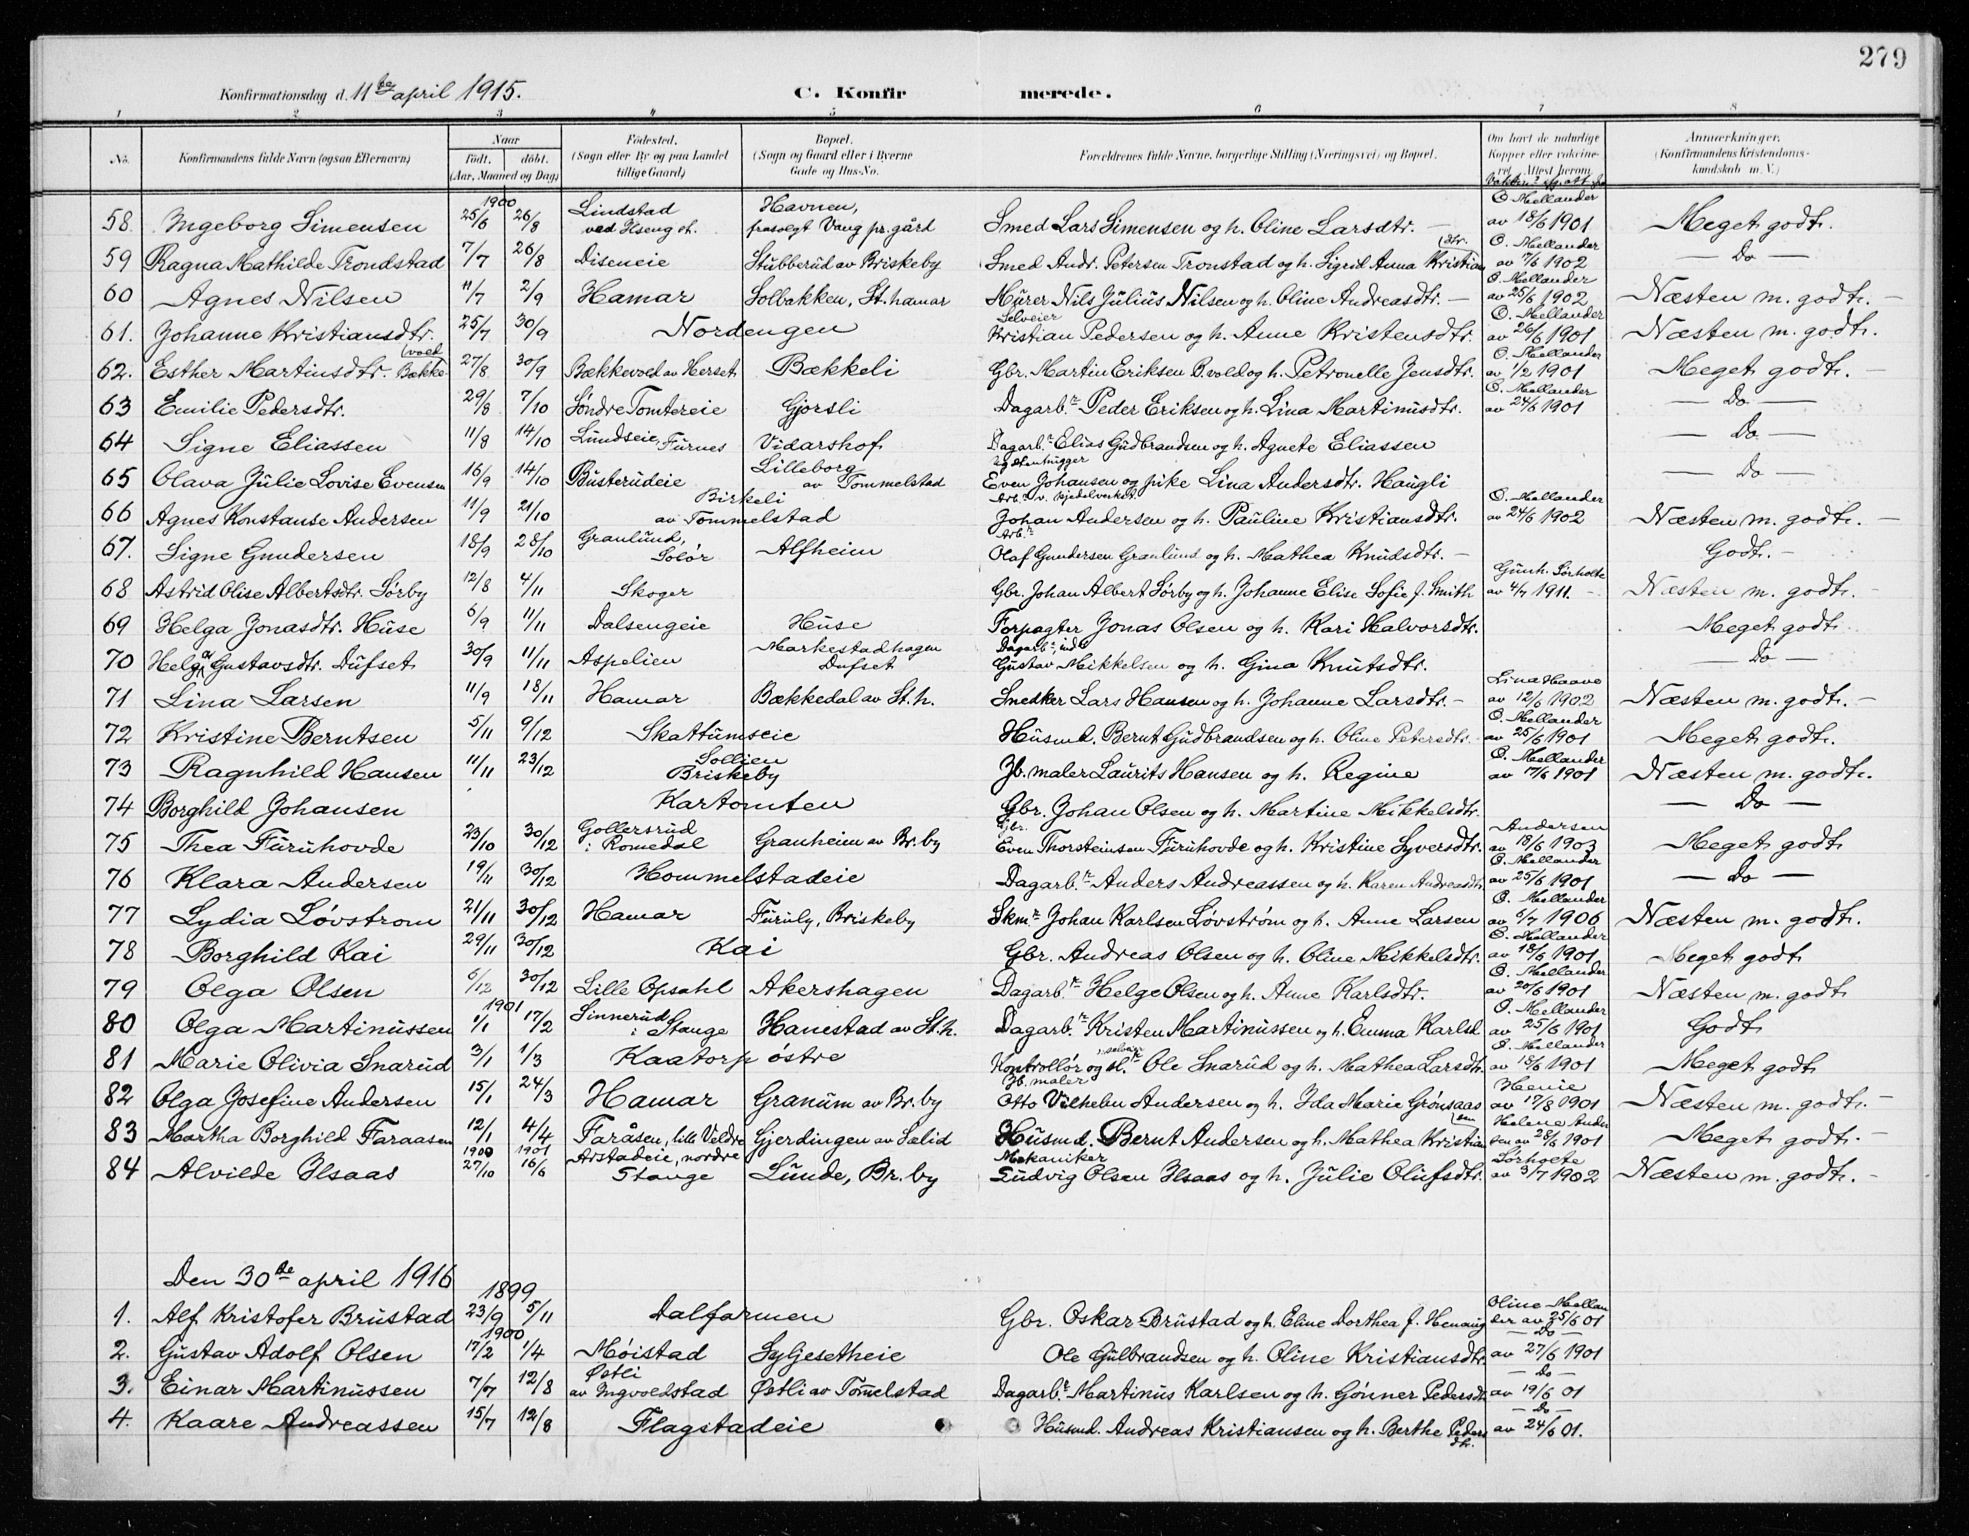 279
Konfirmationsdag d. 11te april 1915. C. Konfirmerede.
1 2 3 4 5 6 7 8
No. Konfirmandens fulde Navn (ogsaa Efternavn) Naar født. døbt. (Aar, Maaned og Dag) Fødested. (Sogn eller By og paa Landet tillige Gaard) Bopæl. (Sogn og Gaard eller i Byerne Gade og Hus-No. Forældrenes fulde Navne, borgerlige Stilling (Næringsvei) og Bopæl. Om havt de naturlige Kopper eller vakcineret. Attest herom Anmærkninger. (Konfirmandens Kristendomskundskab m. V.)
1900
58 Ingeborg Simensen 25/6 26/8 Lindstad ved Ilseng st. Havnen, frasolgt Vang pr.gård Smed Lars Simensen og h. Oline Larsdtr. — O. Mellander av 18/6 1901 Meget godt.
59 Ragna Mathilde Trondstad 7/7 26/8 Diseneie Stubberud av Briskeby Smed Andr. Petersen Tronstad og h. Sigrid Anna Kristian dtr. O. Mellander av 7/6 1902 — Do —
60 Agnes Nilsen 11/7 2/9 Hamar Solbakken, St. hamar Murer Nils Julius Nilsen og h. Oline Andreasdtr. — O. Mellander av 25/6 1902 Næsten m. godt. —
61. Johanne Kristiansdtr. 25/7 30/9 Nordengen Selveier Kristian Pedersen og h. Anne Kristensdtr. O. Mellander av 26/6 1901 Næsten m. godt.
62. Esther Martinsdtr. Bækkevold 27/8 30/9 Bækkevold av Herset Bækkeli Gbr. Martin Eriksen B.vold og h. Petronelle Jensdtr. O. Mellander av 1/2 1901 Meget godt. —
63 Emilie Pedersdtr. 29/8 7/10 Søndre Tomtereie Gjørsli Dagarb.r Peder Eriksen og h. Lina Martinusdtr. O. Mellander av 24/6 1901 — Do —
64 Signe Eliassen 11/8 14/10 Lundseie, Furnes Vidarshof Dagarb.r Elias Gudbrandsen og h. Agnete Eliassen — Do —
65 Olava Julie Lovise Evensen 16/9 14/10 Busterudeie Lilleborg av Tommelstad Even Johansen og pike Lina Andersdtr. Haugli — Do
66 Agnes Konstanse Andersen 11/9 21/10 Birkeli av Tommelstad Johan Andersen og h. Pauline Kristiansdtr. O. Mellander av 24/6 1902 Næsten m. godt. —
67. Signe Gundersen 18/9 28/10 Granlund, Solør Alfheim Arb.r Olaf Gundersen Granlund og h. Mathea Knudsdtr. — Godt. —
68 Astrid Olise Albertsdtr. Sørby 12/8 4/11 Skoger Gbr. Johan Albert Sørby og h. Johanne Elise Sofie f. Smith Gunh. Sørholte av 4/7 1911. — Næsten m. godt. —
69 Helga Jonasdtr. Huse 6/9 11/11 Dalsengeie Huse Forpagter Jonas Olsen og h. Kari Halvorsdtr. Meget godt.
70 Helga Gustavsdtr. Dufset 30/9 11/11 Aspelien Markestadhagen Dufset Gustav Mikkelsen og h. Gina Knutsdtr. — Do —
71 Lina Larsen 11/9 18/11 Hamar Bækkedal av St. h. Snedker Lars Hansen og h. Johanne Larsdtr. — Lina Haave av 12/6 1902 Næsten m. godt. —
72 Kristine Berntsen 5/11 9/12 Skattumseie Husmd. Bernt Gudbrandsen og h. Oline Petersdtr. O. Mellander av 25/6 1901 Meget godt.
73 Ragnhild Hansen 11/11 23/12 Sollien Briskeby Jb. maler Laurits Hansen og h. Regine O. Mellander av 7/6 1901 Næsten m. godt.
74 Borghild Johansen Kartomten Gbr. Johan Olsen og h. Martine Mikkelsdtr. — Do —
75 Thea Furuhovde 23/10 30/12 Gollersrud i Romedal Granheim av Br. by Gbr. Even Thorsteinsen Furuhovde og h. Kristine Syversdtr. Andersen av 18/6 1903 Meget godt
76 Klara Andersen 19/11 30/12 Hommelstadeie Dagarb.r Anders Andreassen og h. Karen Andreasdt. O. Mellander av 25/6 1901 — Do —
77 Lydia Løvstrom 21/11 30/12 Hamar Furuly, Briskeby Skm.r Johan Karlsen Løvstrøm og h. Anne Larsen O. Mellander av 5/7 1906 Næsten m. godt.
78 Borghild Kai 29/11 30/12 Kai Gbr. Andreas Olsen og h. Oline Mikkelsdtr. O. Mellander av 18/6 1901 Meget godt
79 Olga Olsen 6/12 30/12 Lille Opsahl Akershagen Dagarb.r Helge Olsen og h. Anne Karlsdtr. O. Mellander av 20/6 1901 Næsten m. godt
1901
80 Olga Martinussen 1/1 17/2 Sinnerud i Stange Hanestad av St. h. Dagarb.r Kristen Martinussen og h. Emma Karlsd. O. Mellander av 25/6 1901 Godt
81 Marie Olivia Snarud 3/1 1/3 Kaatorp østre Kontrollør og Ole Snarud og h. Mathea Larsdtr. O. Mellander av 18/6 1901 Meget godt
82 Olga Josefine Andersen 15/1 24/3 Hamar Granum av Br. by Jb. maler Otto Vilhelm Andersen og h. Ida Marie Grønsaasen Henie av 17/8 1901 Næsten m. godt. —
83 Martha Borghild Faraasen 12/1 4/4 Faråsen, lille Veldre Gjerdingen av Sælid Husmd. Bernt Andersen og h. Mathea Kristian Helene Andersen av 28/6 1901 Meget godt. —
1900 1901
84 Alvilde Ilsaas 27/10 16/6 Arstadeie, nordre Stange Lunde, Br. by Mekaniker Ludvig Olsen Ilsaas og h. Julie Olufsdtr. Sørholte av 3/7 1902 Næsten m. godt. —
Den 30te april 1916
1899
1. Alf Kristofer Brustad 23/9 5/11 Dalfarmen Gbr. Oskar Brustad og h. Eline Dorthea f. Henaug Oline Mellander av 25/6 01
1900
2. Gustav Adolf Olsen 17/2 1/4 Møistad Syljesetheie Ole Gulbrandsen og h. Oline Kristiansdtr. — Do — av 27/6 1901
3. Einar Martinussen 7/7 12/8 Østli av Ingvoldstad Østli av Tommelstad Dagarb.r Martinus Karlsen og h. Gønner Pedersdtr. — Do — av 19/6 01
4. Kaare Andreassen 15/7 12/8 Flagstadeie Husmd. Andreas Kristiansen og h. Berthe Peders dtr. — Do — av 24/6 01.